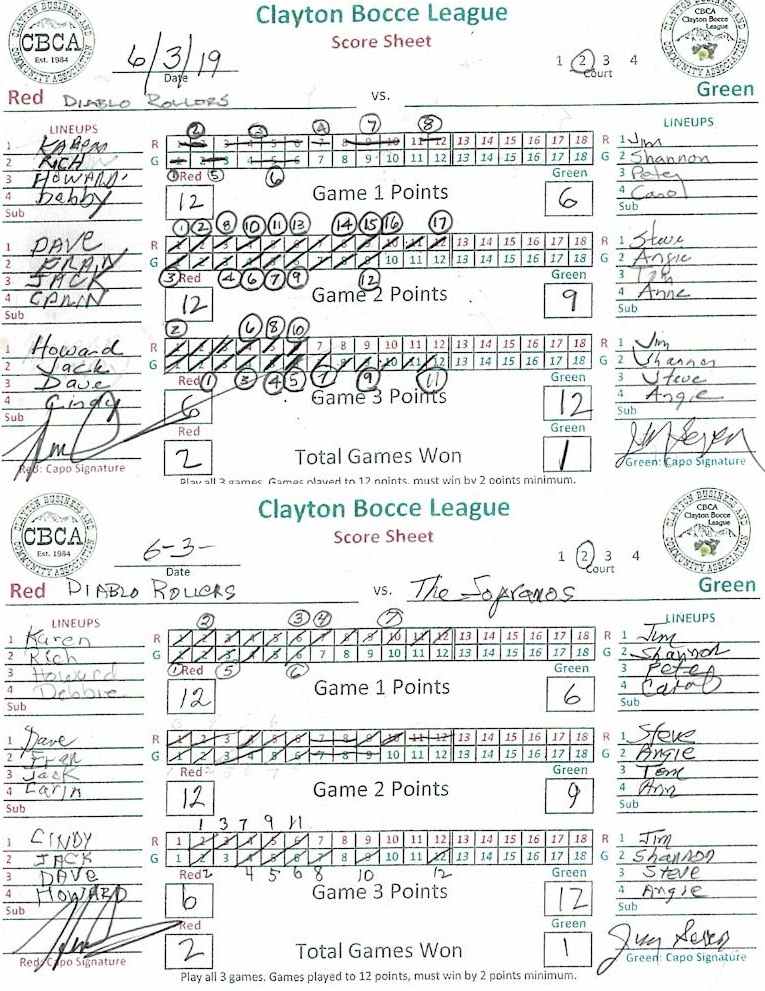 Clayton Bocce League
Score Sheet
CBCA
Est. 1984
CBCA
Clayton Bocce
League
6/3/19
Date
1 2 3 4
Court
Red DIABLO ROLLERS vs. Green
LINEUPS
LINEUPS
1 KAREN
2 RICH
3 HOWARD
4 Debby
Sub
2 3 4 7 8
R 1 2 3 4 5 6 7 8 9 10 11 12 13 14 15 16 17 18 R
G 1 2 3 4 5 6 7 8 9 10 11 12 13 14 15 16 17 18 G
1 5 6
Red Green
12 Game 1 Points 6
1 Jim
2 Shannon
3 Pete
4 Carol
Sub
1 DAVE
2 FRAN
3 JACK
4 CARIN
Sub
1 2 8 10 11 13 14 15 16 17
R 1 2 3 4 5 6 7 8 9 10 11 12 13 14 15 16 17 18 R
G 1 2 3 4 5 6 7 8 9 10 11 12 13 14 15 16 17 18 G
3 4 6 7 9 12
Red Green
12 Game 2 Points 9
1 Steve
2 Angie
3 Tom
4 Anne
Sub
1 Howard
2 Jack
3 Dave
4 Cindy
Sub
2 6 8 10
R 1 2 3 4 5 6 7 8 9 10 11 12 13 14 15 16 17 18 R
G 1 2 3 4 5 6 7 8 9 10 11 12 13 14 15 16 17 18 G
1 3 4 5 7 9 11
Red Green
6 Game 3 Points 12
1 Jim
2 Shannon
3 Steve
4 Angie
Sub
Red Green
2 Total Games Won 1
Red: Capo Signature
Green: Capo Signature
Play all 3 games. Games played to 12 points, must win by 2 points minimum.
CLAYTON BUSINESS AND COMMUNITY ASSOCIATION
CBCA
Est. 1984
Clayton Bocce League
Score Sheet
CBCA
Clayton Bocce
League
6-3-
Date
1 2 3 4
Court
Red DIABLO ROLLERS vs. The Sopranos Green
LINEUPS
LINEUPS
1 Karen
2 Rich
3 Howard
4 Debbie
Sub
2 3 4 7
R 1 2 3 4 5 6 7 8 9 10 11 12 13 14 15 16 17 18 R
G 1 2 3 4 5 6 7 8 9 10 11 12 13 14 15 16 17 18 G
1 5 6
Red Green
12 Game 1 Points 6
1 Jim
2 Shannon
3 Pete
4 Carol
Sub
1 Dave
2 Fran
3 Jack
4 Carin
Sub
R 1 2 3 4 5 6 7 8 9 10 11 12 13 14 15 16 17 18 R
G 1 2 3 4 5 6 7 8 9 10 11 12 13 14 15 16 17 18 G
Red Green
12 Game 2 Points 9
1 Steve
2 Angie
3 Tom
4 Ann
Sub
1 CINDY
2 JACK
3 DAVE
4 HOWARD
Sub
1 3 7 9 11
R 1 2 3 4 5 6 7 8 9 10 11 12 13 14 15 16 17 18 R
G 1 2 3 4 5 6 7 8 9 10 11 12 13 14 15 16 17 18 G
2 4 5 6 8 10 12
Red Green
6 Game 3 Points 12
1 Jim
2 Shannon
3 Steve
4 Angie
Sub
Red Green
2 Total Games Won 1
Red: Capo Signature
Green: Capo Signature
Play all 3 games. Games played to 12 points, must win by 2 points minimum.